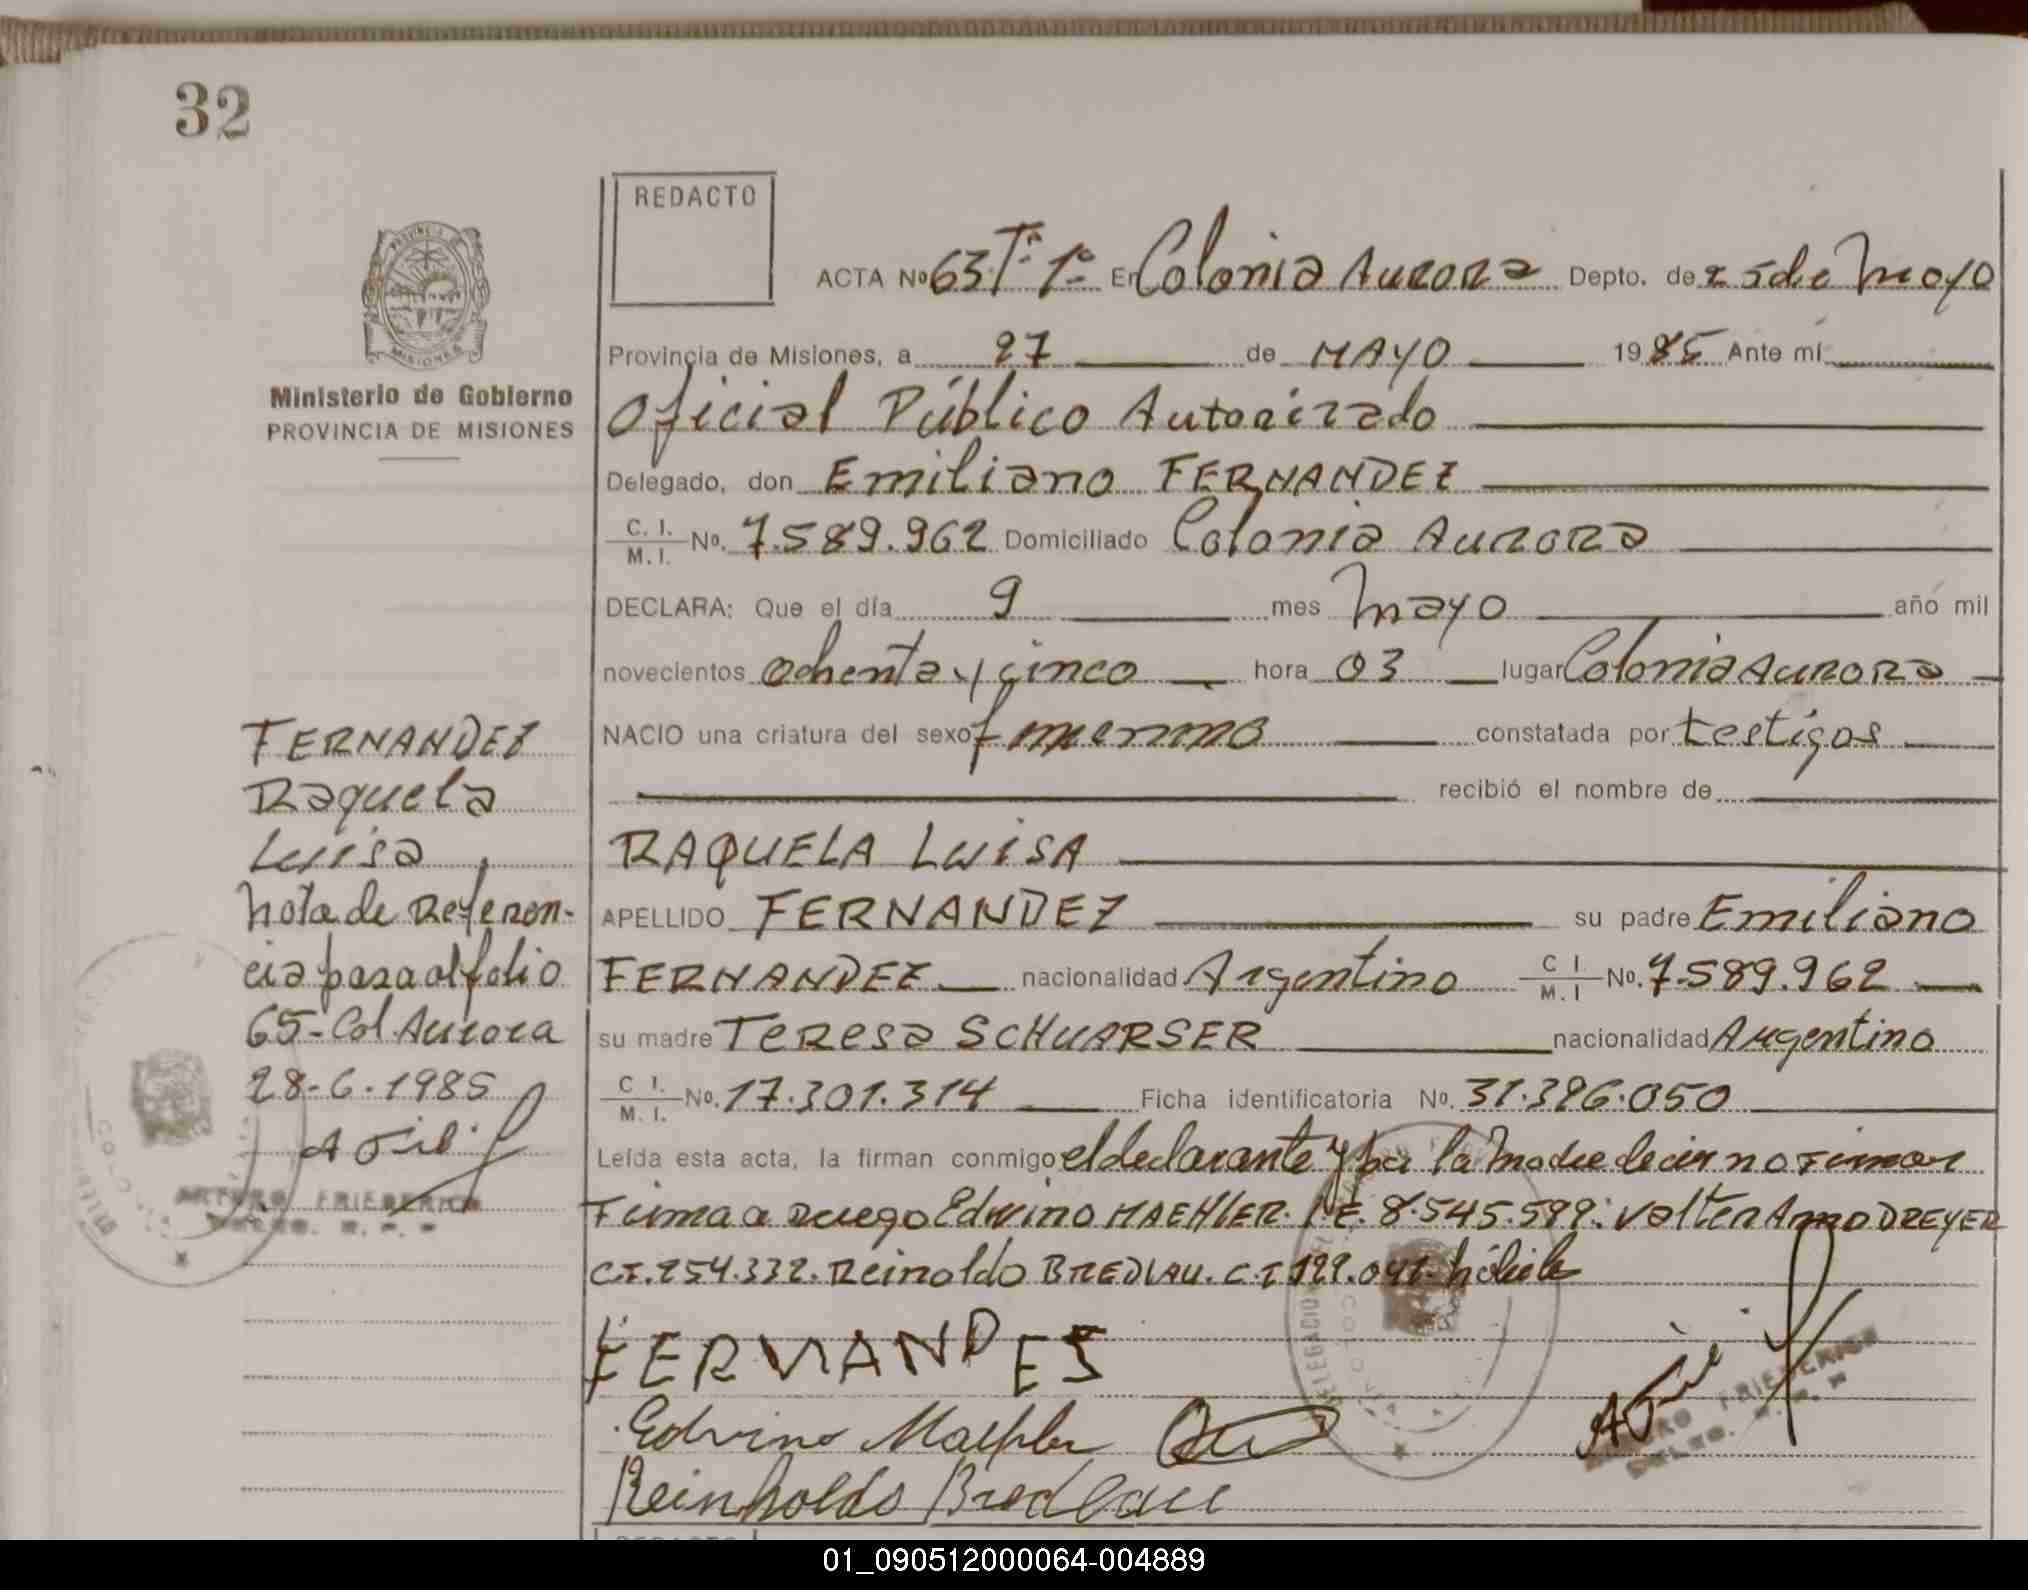 32
REDACTO
ACTA Nº 63 Tº 1º En Colonia Aurora Depto. de 25 de Mayo
PROVINCIA DE
MISIONES
Provincia de Misiones, a 27 de MAYO 1985 Ante mí
Ministerio de Gobierno
PROVINCIA DE MISIONES
Oficial Público Autorizado
Delegado, don Emiliano FERNANDEZ
C. I. / M. I. No. 7.589.962 Domiciliado Colonia Aurora
DECLARA: Que el día 9 mes Mayo año mil
novecientos ochenta y cinco hora 03 lugar Colonia Aurora
NACIO una criatura del sexo femenino constatada por testigos
recibió el nombre de
RAQUELA LUISA
APELLIDO FERNANDEZ su padre Emiliano
FERNANDEZ nacionalidad Argentino C I / M. I No. 7.589.962
su madre Teresa SCHUARSER nacionalidad Argentino
C I. / M. I. No. 17.301.314 Ficha identificatoria No. 31.396.050
Leída esta acta, la firman conmigo el declarante y por la Madre decir no Firmar
Firma a Ruego Edvino MAEHLER. L.E. 8.545.599: Valter Arno DREYER
C.I. 254.332. Reinoldo BREDLAU. C.I 122.041.
FERNANDES
Edvino Maehler
Reinholdo Bredlau
ARTURO FRIEDERICH
FERNANDEZ
Raquela
Luisa
Nota de Referen-
cia pasa al folio
65-Col. Aurora
28-6-1985
ARTURO FRIEDERICH
REDACTO
01_090512000064-004889